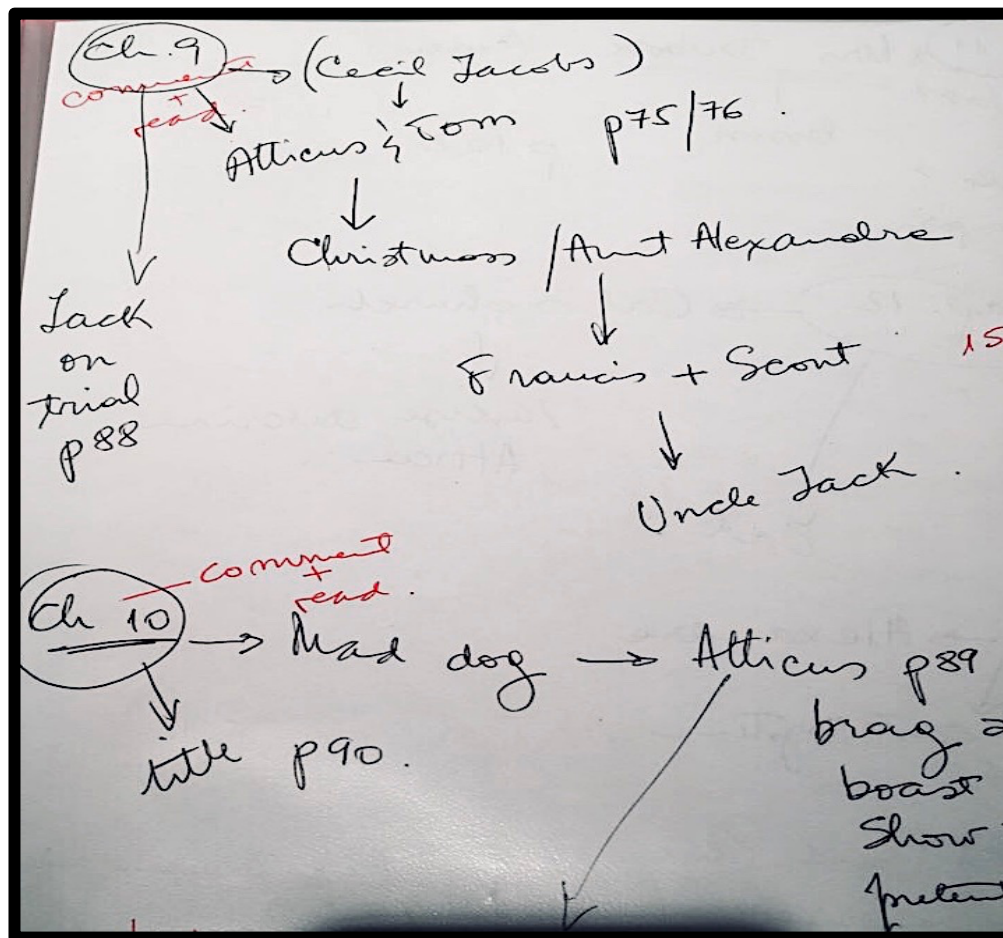 Ch. 9 → (Cecil Jacobs)
comment
+
read.
Atticus & Tom p75/76.
Christmass / Aunt Alexandra
Jack
on
trial
p88
Francis + Scout
15
Uncle Jack.
comment
+
read.
Ch 10 → Mad dog → Atticus p89
title p90.
brag
boast
Show